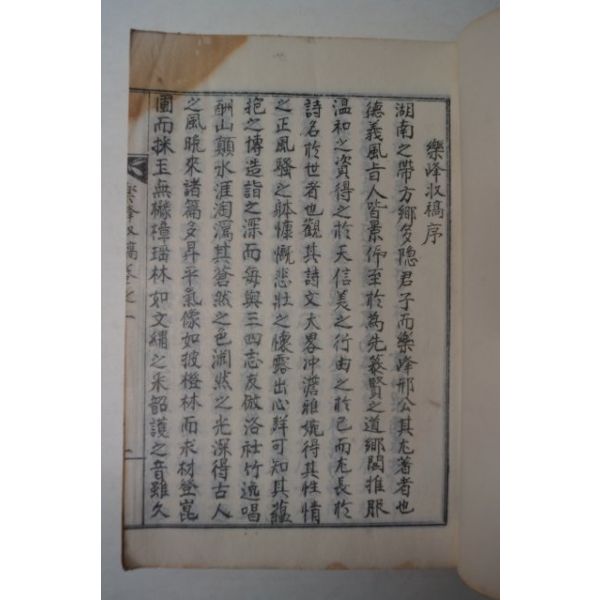 樂峰收稿序
湖南之帶方鄉多隠君子而樂峰邢公其尤著者也
德義風旨人皆景仰至於為先義賢之道鄉閭推服
温和之資得之於天信美之行由之於已而尤長於
詩名於世者也觀其詩文大畧冲澹雅婉得其性情
之正風騷之躰慷慨悲壯之懷露出心鮮可知其蘊
抱之博造詣之深而每與三四志友倣洛社竹逸唱
酬山顛水涯淘瀉其蒼然之色淵然之光深得古人
之風晩來諸篇多昇平氣像如披橙林而求材登崑
圃而採玉無櫞樟璠林如文繡之釆韶頀之音雖久
樂峰收稿卷之一